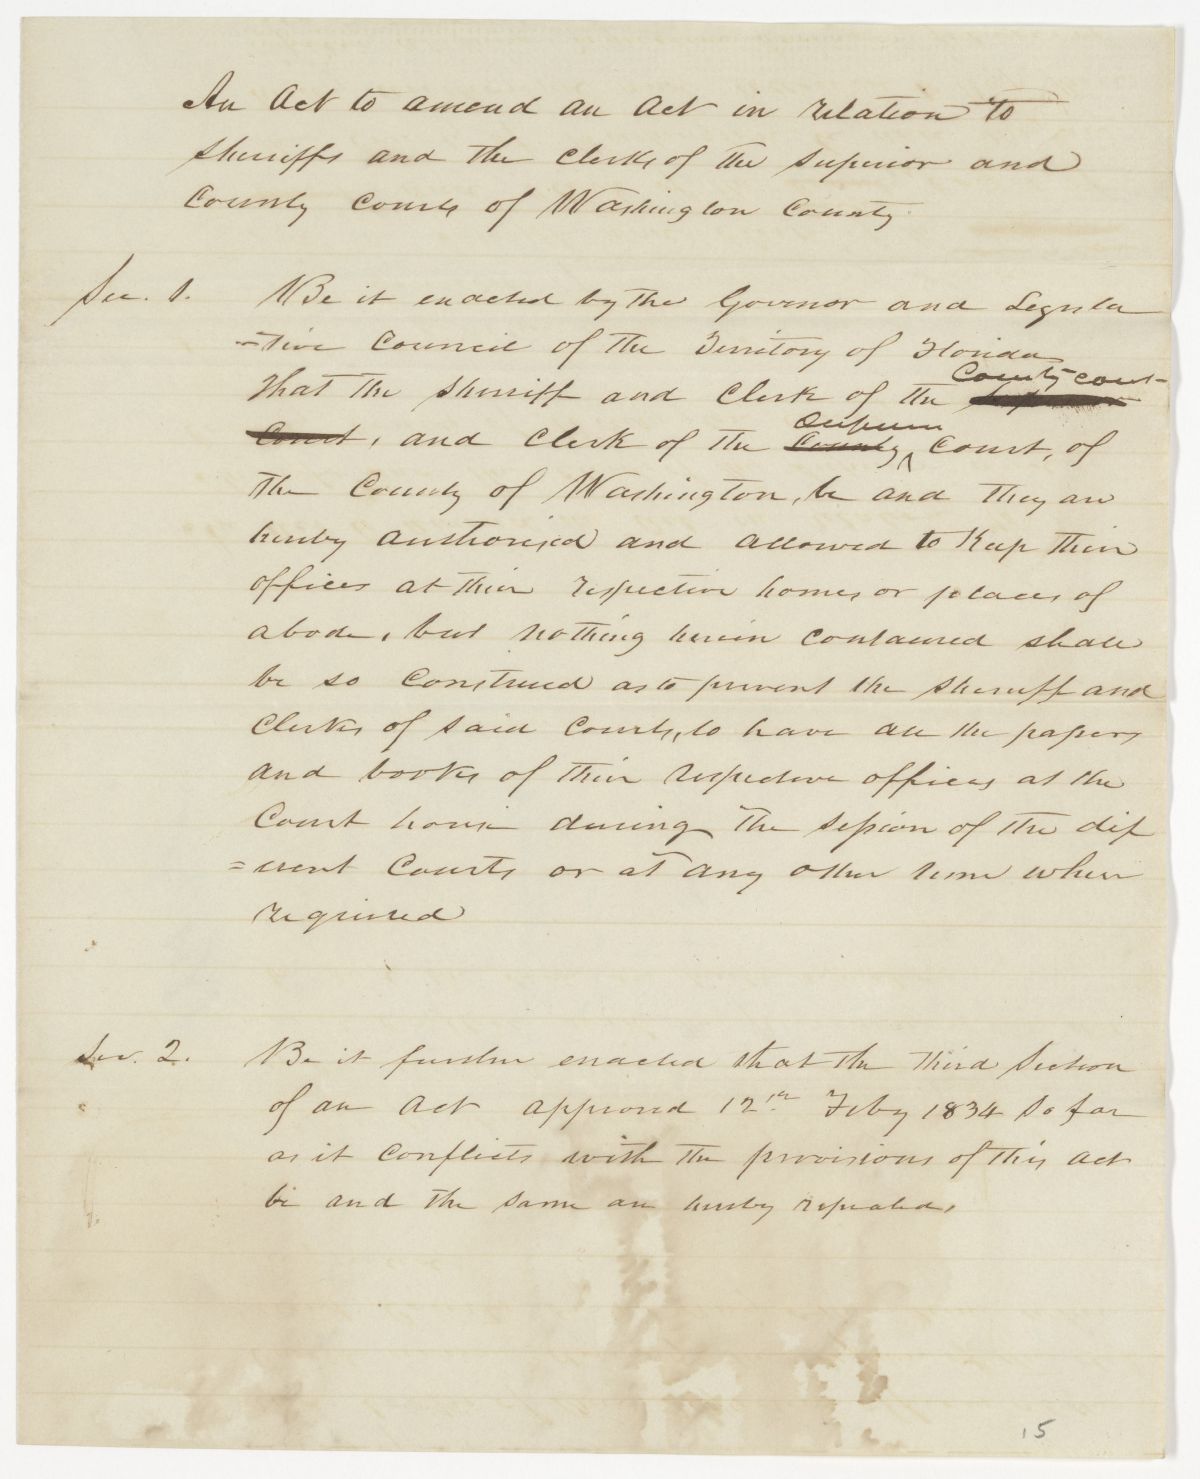 An Act to amend an Act in relation to
Sherriffs and the Clerks of the Superior and
County Courts of Washington County
Sec. 1. Be it enacted by the Govenor and Legisla
=tive Council of the Territory of Florida
That the Sherriff and Clerk of the County court
Court, and Clerk of the County Court, of
the County of Washington, be and they are
hereby authorised and allowed to Keep their
offices at their respective homes or places of
abode, but nothing herein contained shall
be so construed as to prevent the Sherriff and
Clerks of said Courts, to have all the papers
and books of their respective offices at the
Court house during the session of the dif
=erent Courts or at any other time when
required
Sec. 2. Be it further enacted that the third Section
of an Act approved 12th Feby 1834 so far
as it conflicts with the provisions of this act
be and the same are hereby repealed,
15